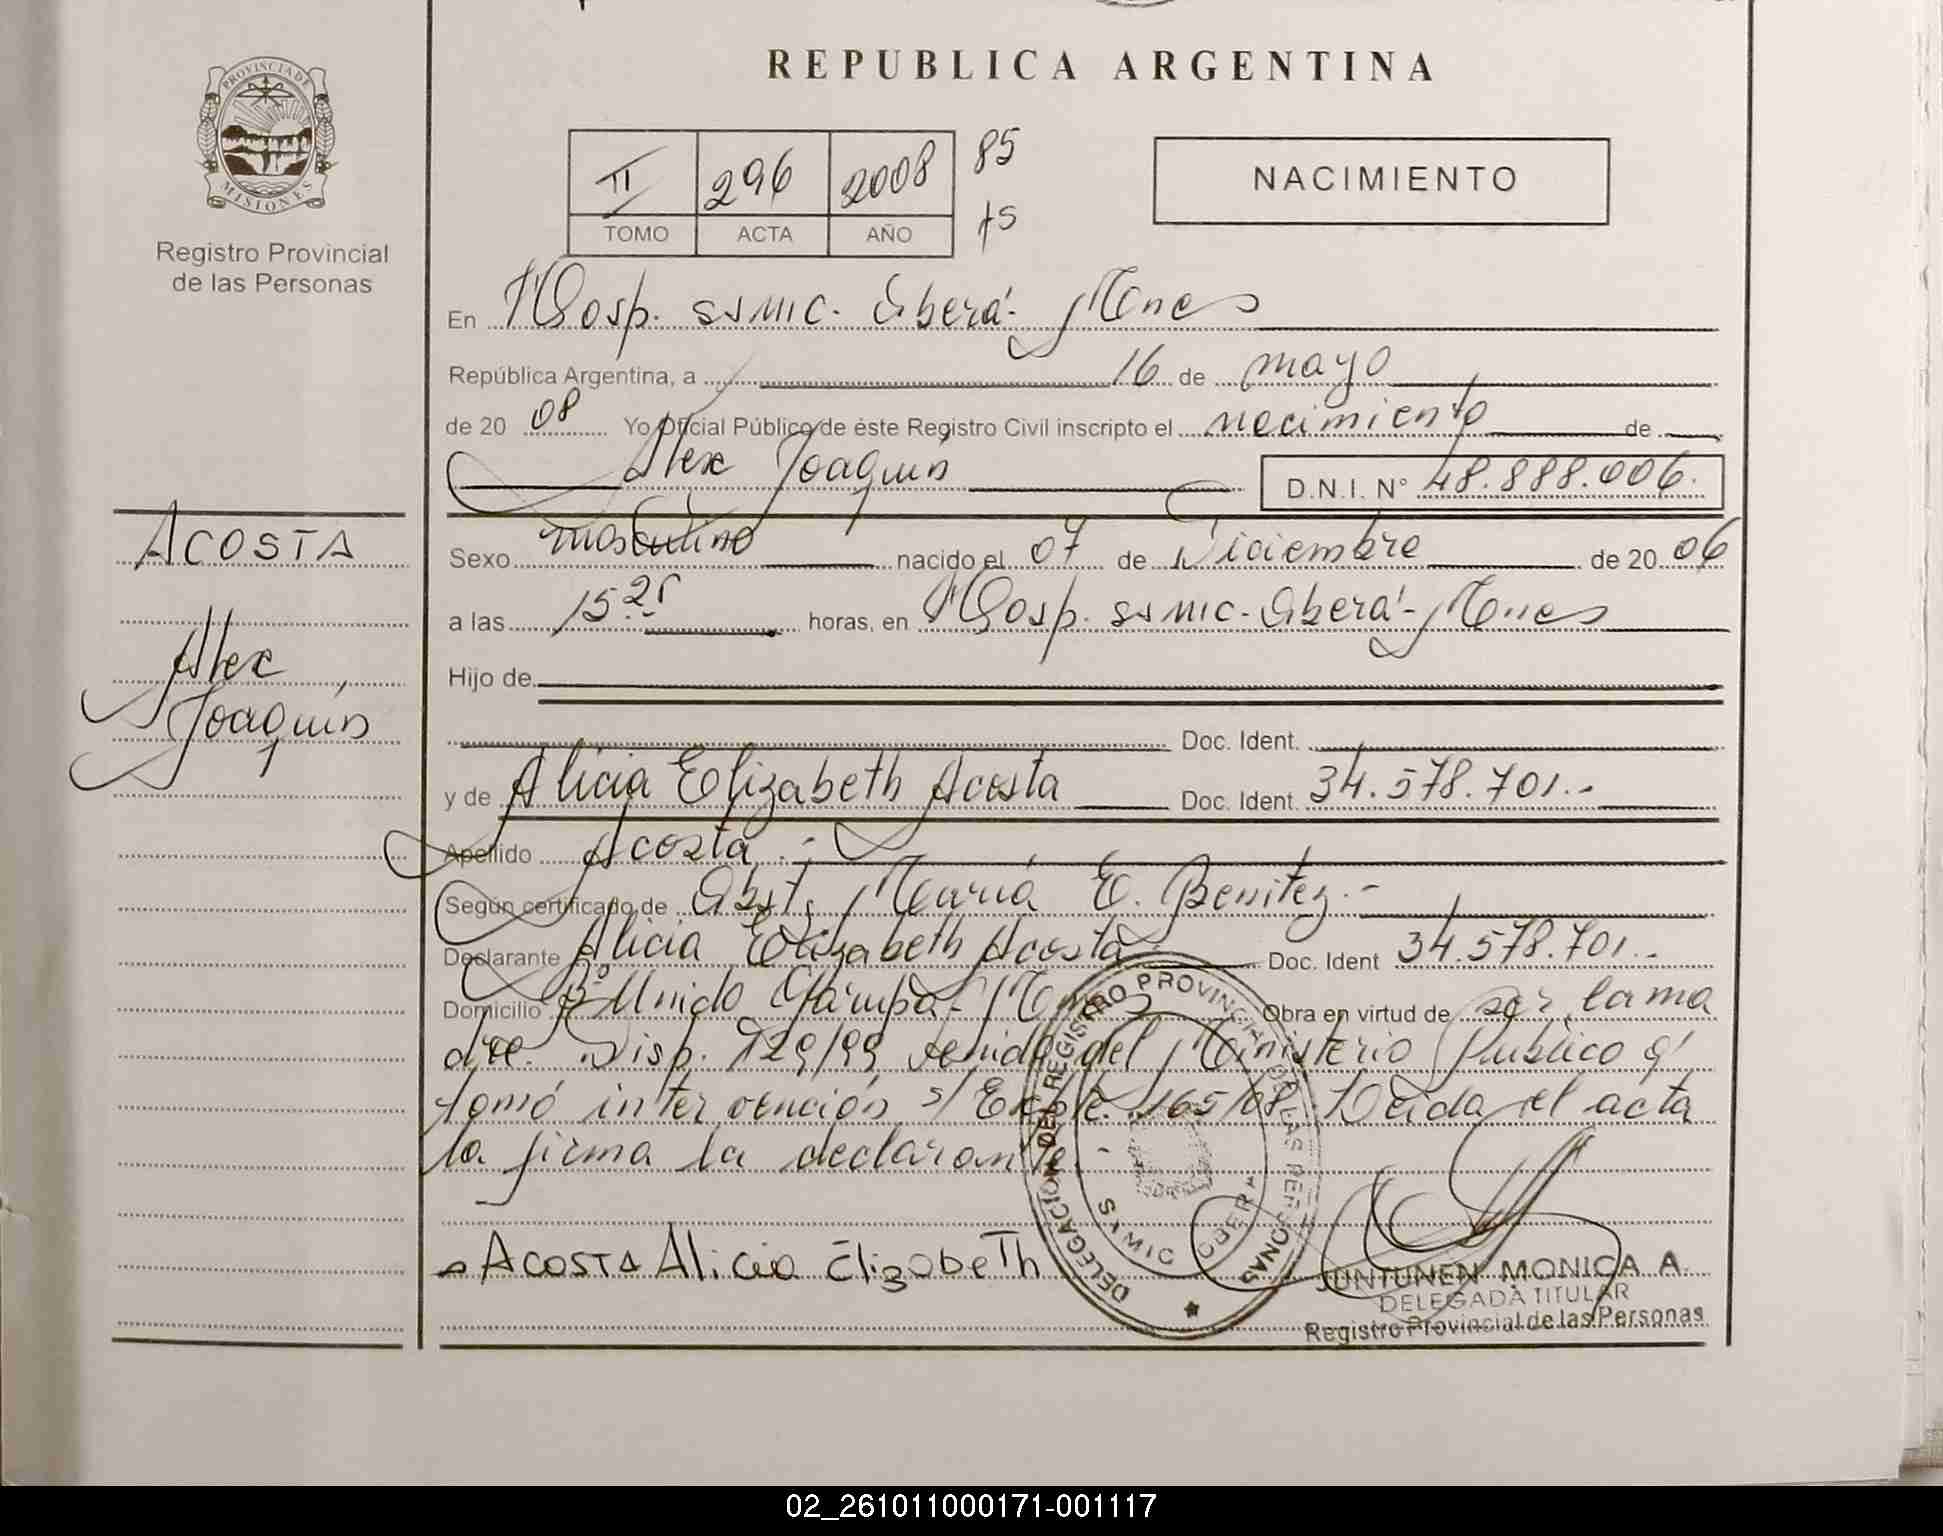 REPUBLICA ARGENTINA
PROVINCIA DE
MISIONES
Registro Provincial
de las Personas
II 296 2008 85
TOMO ACTA AÑO 75
NACIMIENTO
En Hosp. SSMIC. Oberá- Mnes
República Argentina, a 16 de mayo
de 20 08 Yo Oficial Público de éste Registro Civil inscripto el nacimiento de
Alex Joaquín D.N.I. N° 48.888.006.
ACOSTA
Alex
Joaquín
Sexo masculino nacido el 07 de Diciembre de 20 06
a las 15 25 horas, en Hosp. SSMIC-Oberá-Mnes
Hijo de
Doc. Ident.
y de Alicia Elizabeth Acosta Doc. Ident. 34.578.701.-
Apellido Acosta.-
Según certificado de Obst. María E. Benitez.-
Declarante Alicia Elizabeth Acosta Doc. Ident 34.578.701.-
Domicilio Bº Unido Yarupá-Mnes Obra en virtud de ser la ma
dre. Disp. 729/99 del Ministerio Público q'
tomó intervención s/ Expte. 165/08. Leída el acta
la firma la declarante.-
ACOSTA Alicia ElizabeTh
DELEGACION DEL REGISTRO PROVINCIAL DE LAS PERSONAS
OBERA
JUNTUNEN MONICA A.
DELEGADA TITULAR
Registro Provincial de las Personas
02_261011000171-001117